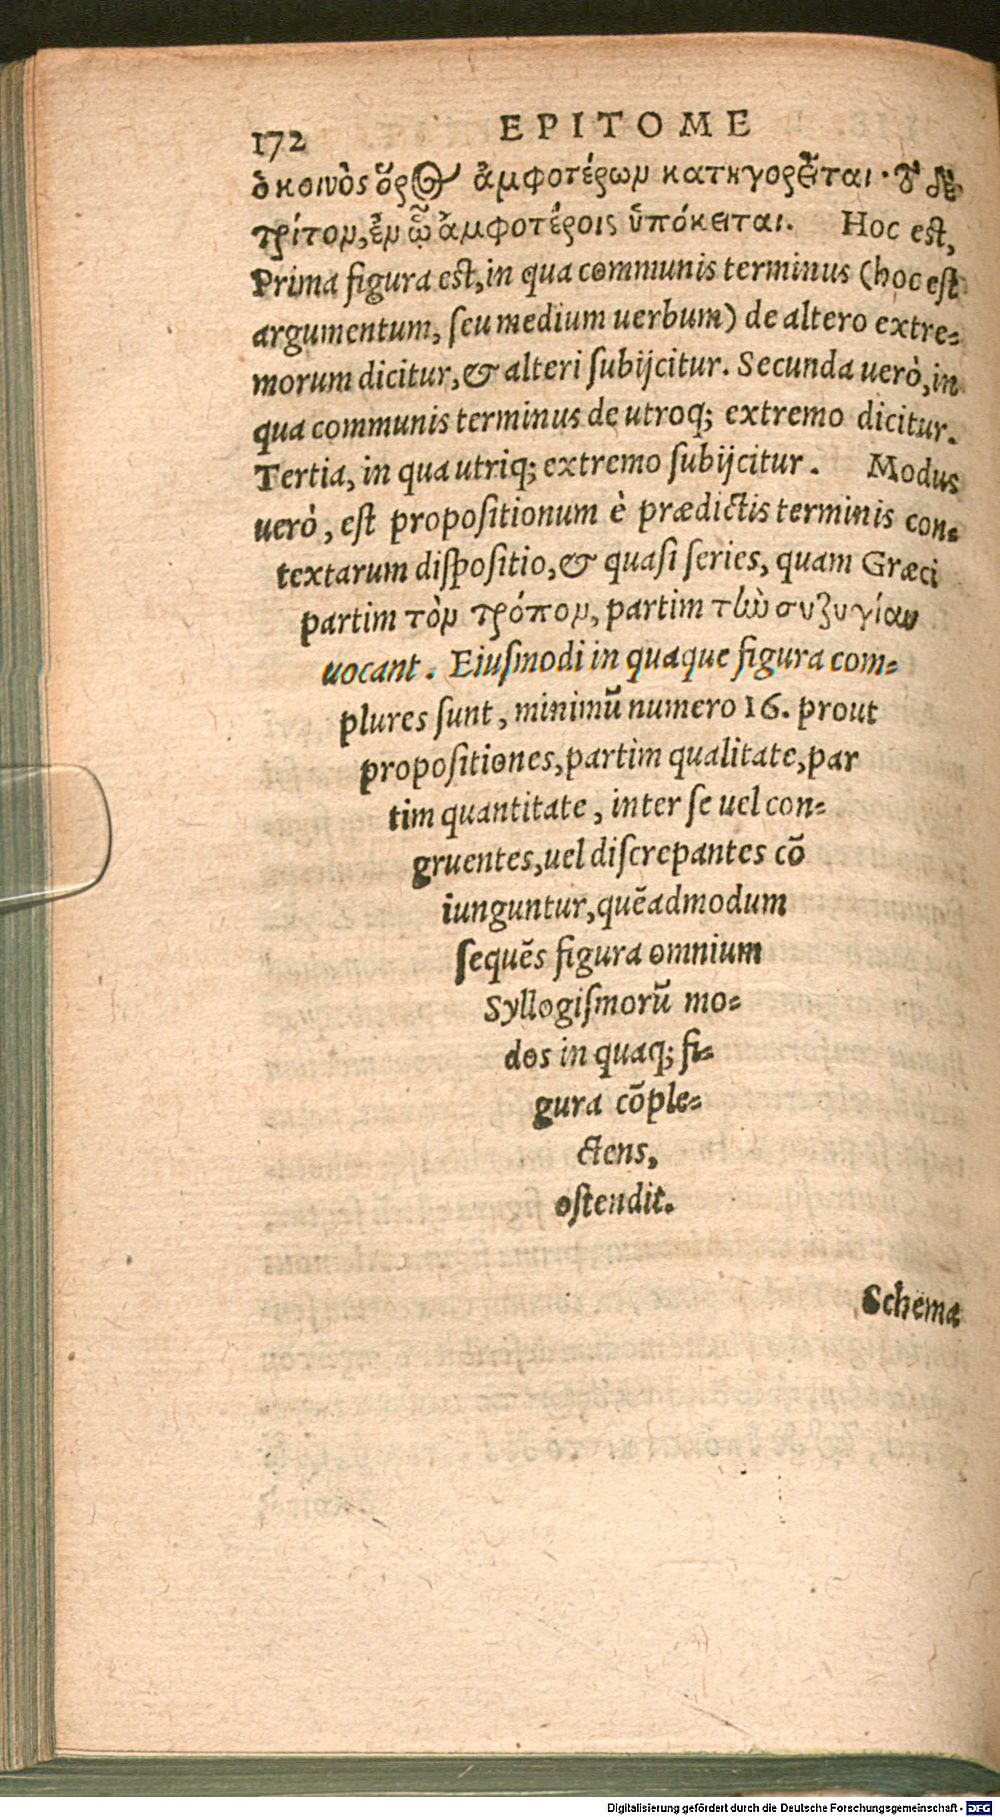 172 EPITOME
ὁ κοινὸς ὅρος ἀμφοτέρων κατηγορεῖται· τὸ δὲ
τρίτον, ἐν ᾧ ἀμφοτέροις ὑπόκειται. Hoc est,
Prima figura est, in qua communis terminus (hoc est
argumentum, ſeu medium uerbum) de altero extre-
morum dicitur, & alteri ſubijcitur. Secunda uerò, in
qua communis terminus de utroq; extremo dicitur.
Tertia, in qua utriq; extremo ſubijcitur. Modus
uerò, eſt propoſitionum è prædictis terminis con-
textarum diſpoſitio, & quaſi ſeries, quam Græci
partim τὸν τρόπον, partim τὼ συζυγίαν
uocant. Eiuſmodi in quaque figura com-
plures ſunt, minimū numero 16. prout
propoſitiones, partim qualitate, par
tim quantitate, inter ſe uel con-
gruentes, uel diſcrepantes cō
iunguntur, quēadmodum
ſequēs figura omnium
Syllogiſmorū mo-
dos in quaq; fi-
gura cōple-
ctens,
oſtendit.
Schema
Digitalisierung gefördert durch die Deutsche Forschungsgemeinschaft - DFG